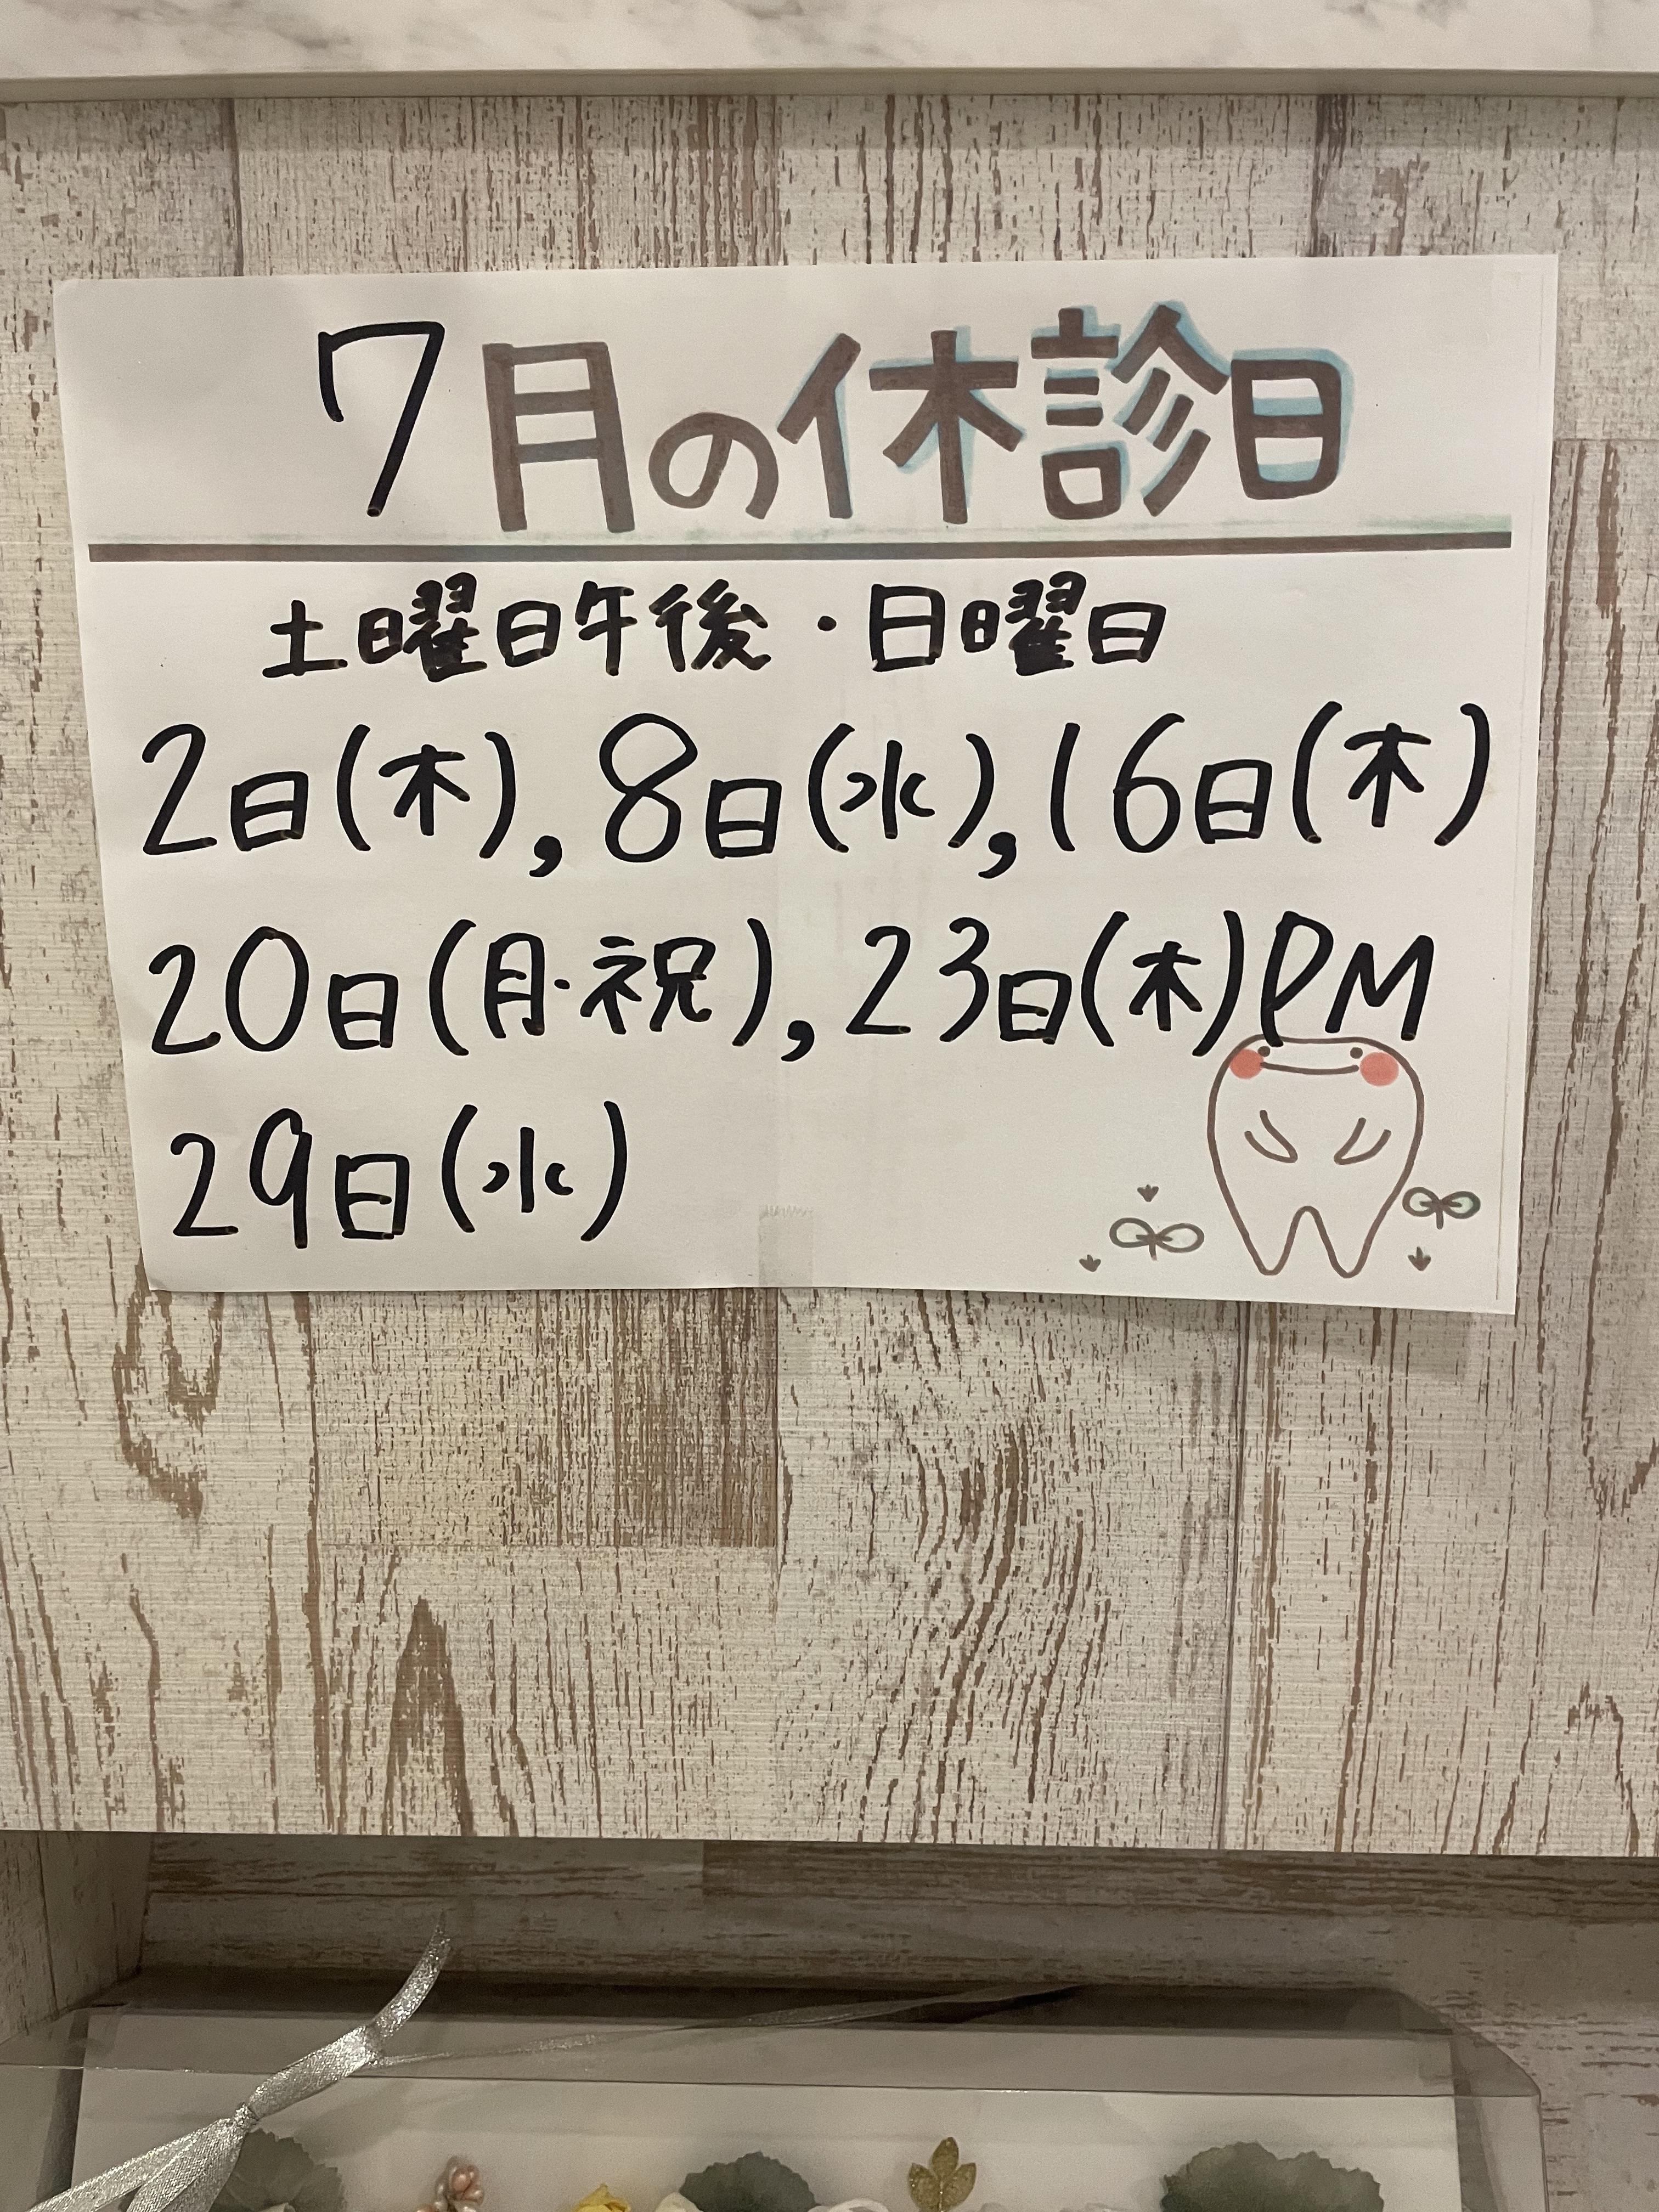 7月の休診日
土曜日午後・日曜日
2日(木),8日(水),16日(木)
20日(月・祝),23日(木)PM
29日(水)